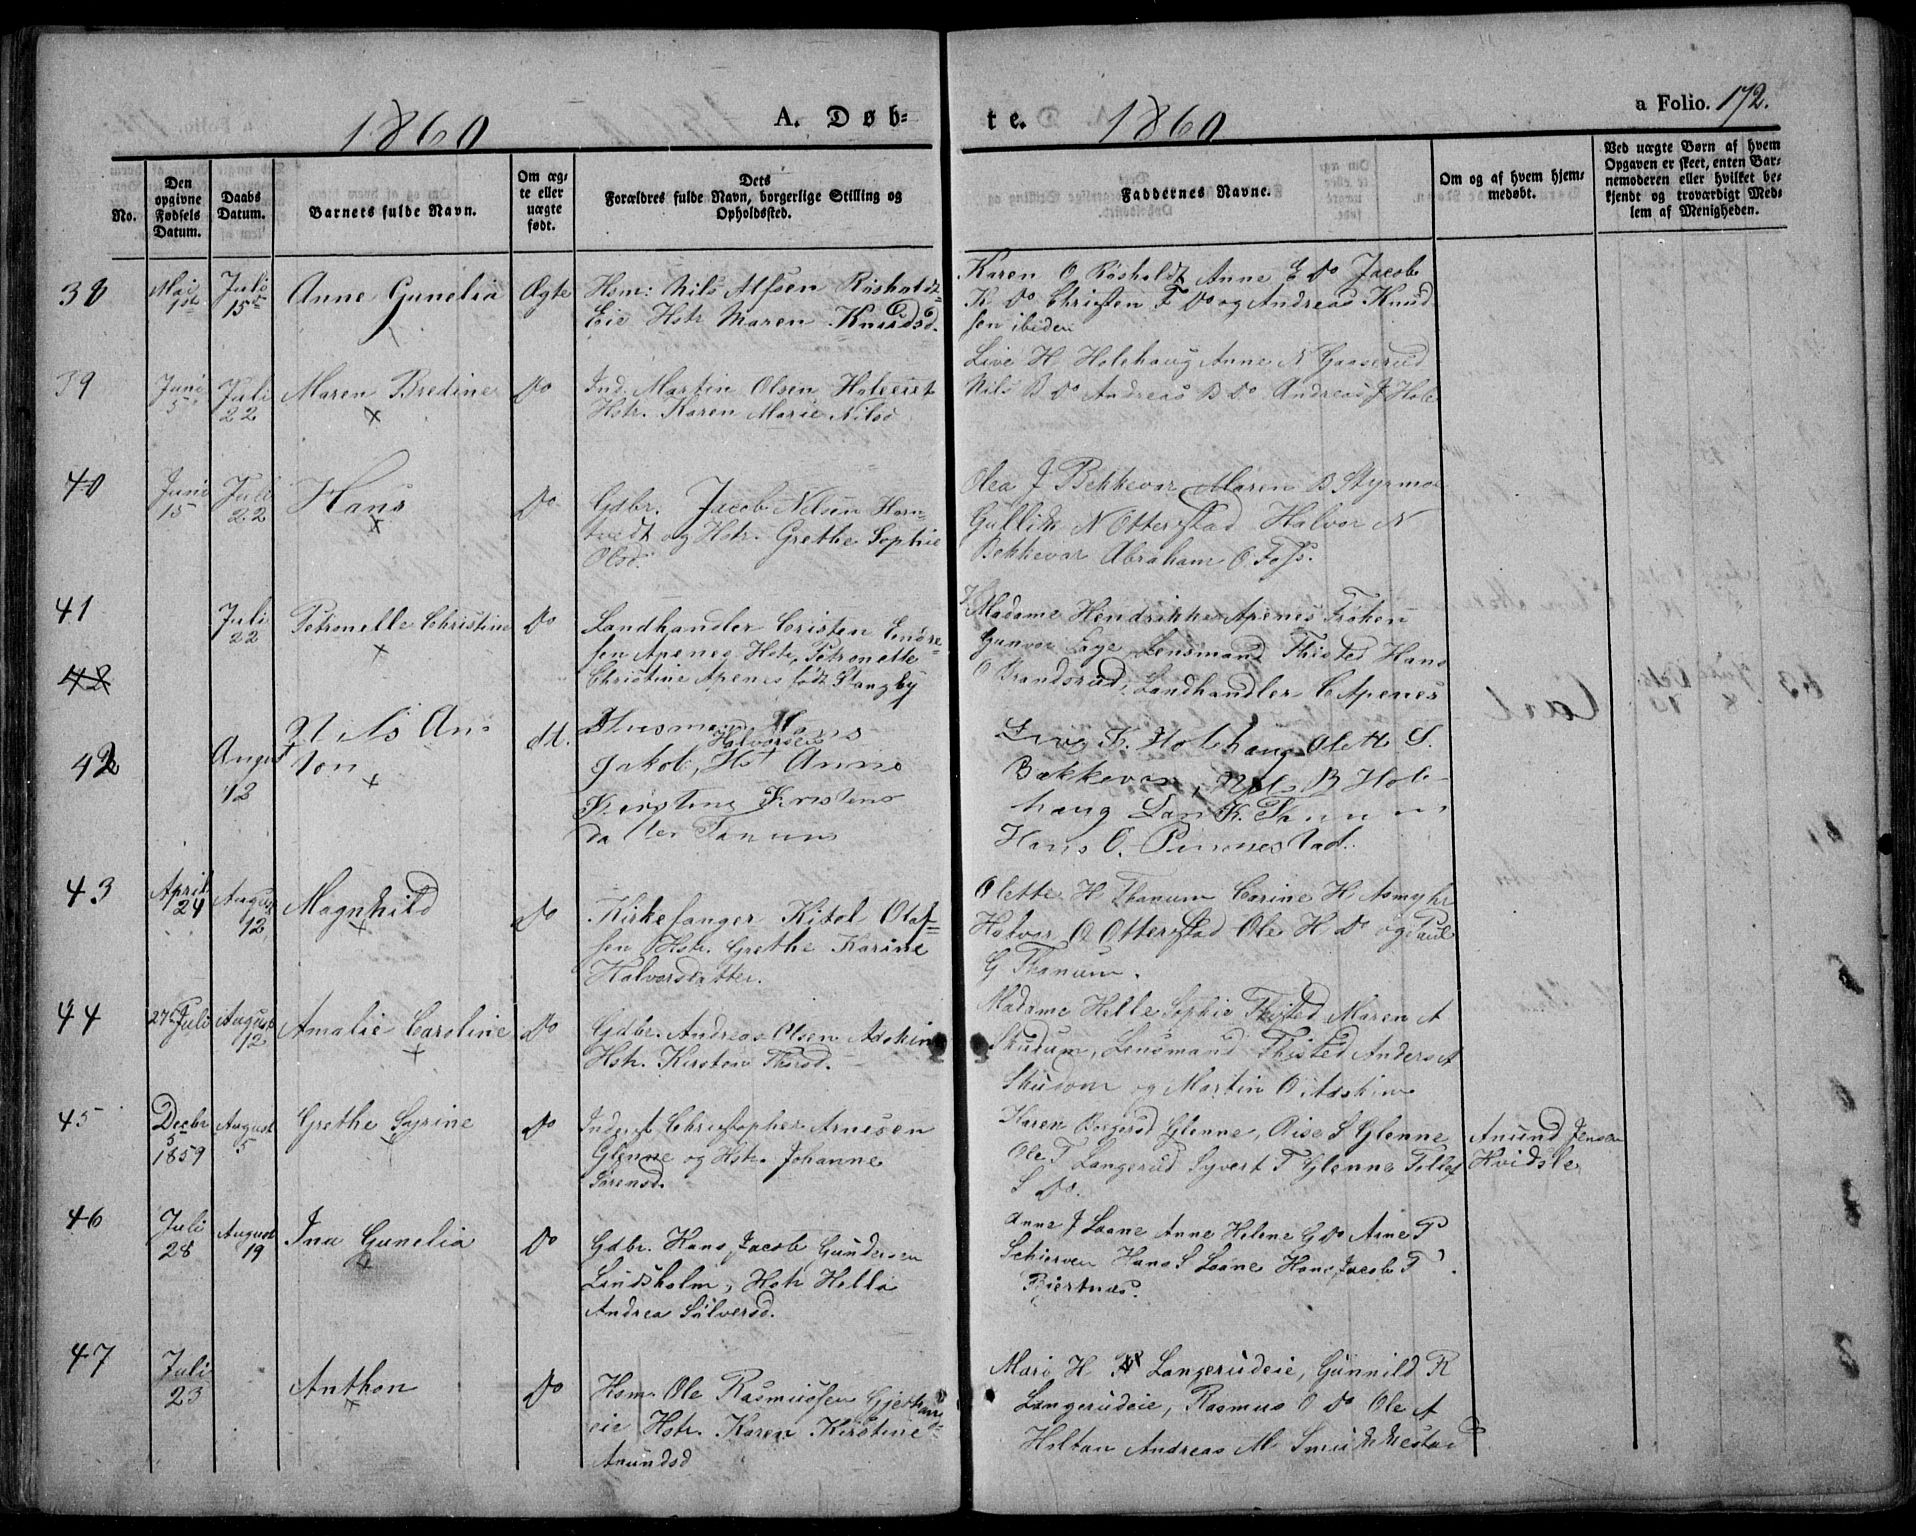 1860 A. Døb= te. 1860 a Folio. 172.
No.
Den opgivne Fødsels Datum.
Daabs Datum.
Barnets fulde Navn.
Om æg-te eller uægte født.
Dets Forældres fulde Navn, borgerlige Stilling og Opholdssted.
Faddernes Navne.
Om og af hvem hjem-medøbt.
Ved uægte Børn af hvem Opgaven er skeet, enten Bar-nemoderen eller hvilket be-kjendt og troværdigt Med-lem af Menigheden.
38 Mai 1ste Juli 15de Anne Gunelia Ægte
Hsm: Nils Alfsen Røsholdt
Eie Hstr Maren Knudsd.
Karen O Røsholdt Anne E Do Jacob
K Do Christen F Do og Andreas Knud
sen ibiden
39 Juni 5 Juli 22 Maren Bredine Do
Ind. Martin Olsen
Hstr. Karen Marie Nilsd
Live H Holehaug Anne N Gaaserud
Nils B Do Andreas B Do Andreas J Hole
40 Juni 15 Juli 22 Hans Do
Gdbr. Jacob Nelsen Horn
tvedt og Hstr. Grethe Sophie
Olsd.
Olea J Bekkevar Maren B Styrmo
Gullik N Otterstad Halvor N
Bekkevar Abraham O. Foss.
41 Juli 22 Petronelle Christine Do
Landhandler Cristen Endre-
sen Apenes Hstr, Petronette
Christine Apenes født Slangby
Madame Hendrikke Apenes Frøken
Gunvor Lage Lensmand Thisted Hans
O Brandsrud, Landhandler C Apenes
42
42 August 12 Nils An-
ton dd.
Husmand Hans
Halvorsen
Jakob, Hst Anne
Kirstine Kristens
datter Tanum
Live K. Holehaug Olette S.
Bækkevar, Nils B Hole-
haug Lars K. Tanum
Hans O. Pinnestad.
43 April 24 August 12 Magnhild Do
Kirkesanger Kitol Olaf-
sen Hstr. Grethe Karine
Halvorsdatter.
Olette H Thanum Carine H Asmyhr
Halvor O Otterstad Ole H Do og Paul
G Thanum.
44 27 Juli August 12 Amalie Caroline Do
Gdbr. Andreas Olsen Adskin
Hstr. Kirsten Thorsd.
Madame Helle Sophie Thisted Maren A
Skudum, Lensmand Thisted Anders A
Skudom og Martin O Adskin
45 Decbr 5 1859 August 5 Grethe Syrine Do
Inderst Christopher Arnesen
Glenne og Hstr. Johanne
Sørensd.
Karen Borgersd Glenne, Aise S Glenne
Ole T Langerud Syvert T Glenne Tollef
S Do.
Anund Jensen
Hvidsle
46 Juli 28 August 19 Ina Gunelia Do
Gdbr. Hans Jacob Gundersen
Lindsholm, Hstr Hella
Andrea Sølversd.
Anne J Laane Anne Helene G Do Arne P
Schierven Hans S Laane Hans Jacob T
Biertnæs.
47 Juli 23 Anthon Do
Hsm. Ole Rasmussen
eie Hstr. Karen Kirstine
Anundsd
Mari H Langerudeie, Gunnild R
Langerudeie, Rasmus O Do Ole A
Holtan Andreas M